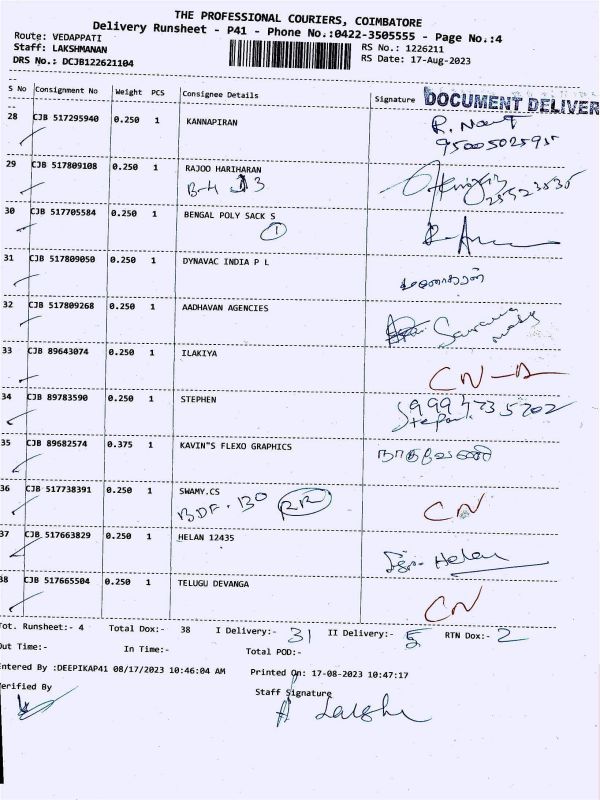 THE PROFESSIONAL COURIERS, COIMBATORE
Delivery Runsheet - P41 - Phone No.:0422-3505555 - Page No.:4
Route: VEDAPPATI
Staff: LAKSHMANAN
RS No.: 1226211
DRS No.: DCJB122621104
RS Date: 17-Aug-2023
S No Consignment No Weight PCS Consignee Details Signature DOCUMENT DELIVER
28 CJB 517295940 0.250 1 KANNAPIRAN
9500502595
29 CJB 517809108 0.250 1 RAJOO HARIHARAN
30 CJB 517705584 0.250 1 BENGAL POLY SACK S
1
31 CJB 517809050 0.250 1 DYNAVAC INDIA P L
32 CJB 517809268 0.250 1 AADHAVAN AGENCIES
33 CJB 89643074 0.250 1 ILAKIYA
CN-A
34 CJB 89783590 0.250 1 STEPHEN
35 CJB 89682574 0.375 1 KAVIN"S FLEXO GRAPHICS
36 CJB 517738391 0.250 1 SWAMY.CS
CN
37 CJB 517663829 0.250 1 HELAN 12435
Helan
38 CJB 517665504 0.250 1 TELUGU DEVANGA
CN
Tot. Runsheet:- 4 Total Dox:- 38 I Delivery:- 31 II Delivery:- 5 RTN Dox:- 2
Out Time:- In Time:- Total POD:-
Entered By :DEEPIKAP41 08/17/2023 10:46:04 AM Printed On: 17-08-2023 10:47:17
Verified By Staff Signature